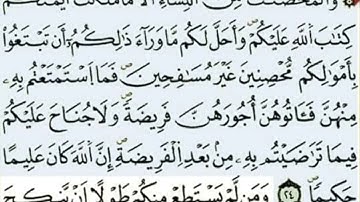 وَالْمُحْصَنَاتُ مِنَ النِّسَاءِ إِلَّا مَا مَلَكَتْ أَيْمَانُكُمْ
كِتَابَ اللَّهِ عَلَيْكُمْ وَأُحِلَّ لَكُم مَّا وَرَاءَ ذَٰلِكُمْ أَن تَبْتَغُوا
بِأَمْوَالِكُم مُّحْصِنِينَ غَيْرَ مُسَافِحِينَ فَمَا اسْتَمْتَعْتُم بِهِ
مِنْهُنَّ فَآتُوهُنَّ أُجُورَهُنَّ فَرِيضَةً وَلَا جُنَاحَ عَلَيْكُمْ
فِيمَا تَرَاضَيْتُم بِهِ مِن بَعْدِ الْفَرِيضَةِ إِنَّ اللَّهَ كَانَ عَلِيمًا
حَكِيمًا ٢٤ وَمَن لَّمْ يَسْتَطِعْ مِنكُمْ طَوْلًا أَن يَنكِحَ